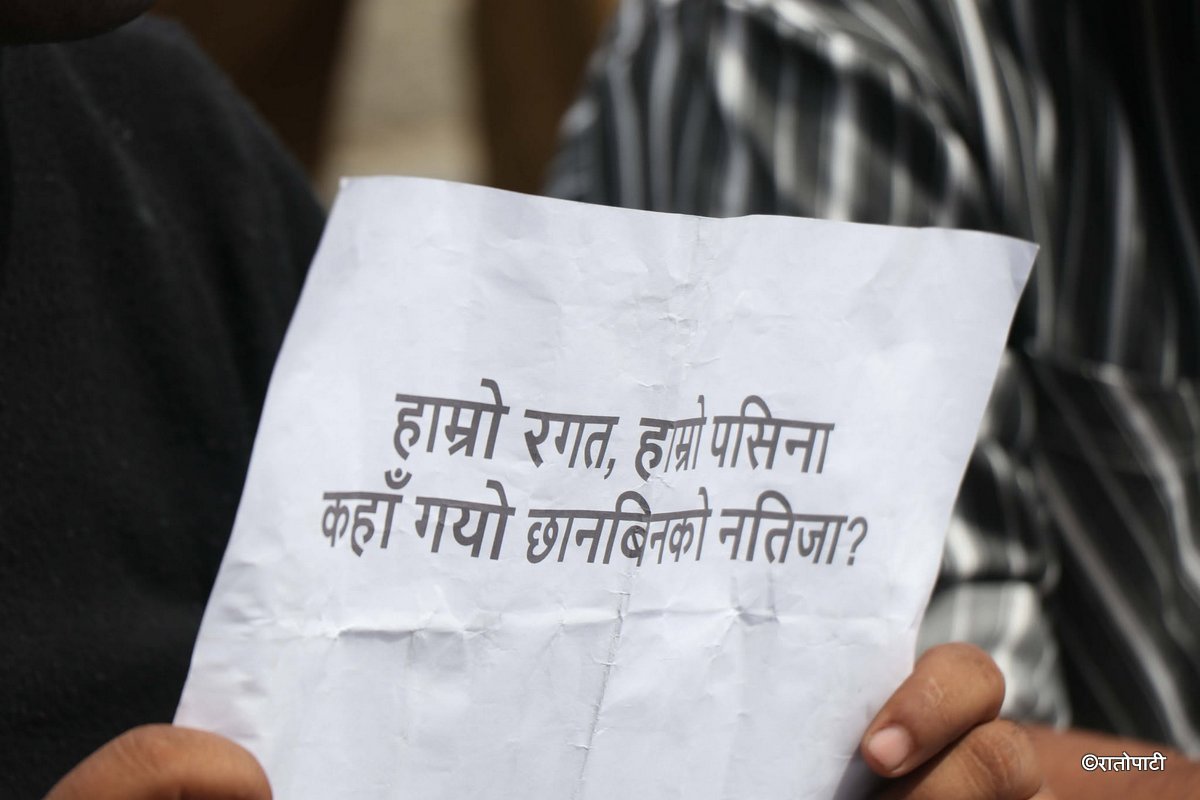 हाम्रो रगत, हाम्रो पसिना
कहाँ गयो छानबिनको नतिजा?
©रातोपाटी